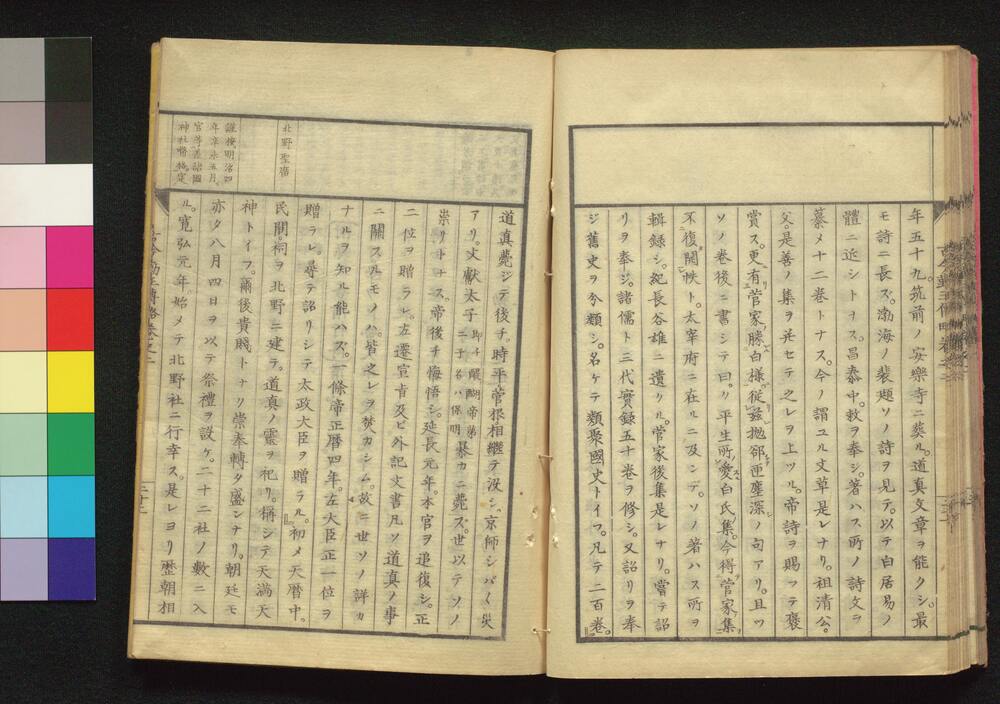 年五十九。筑前ノ安樂寺ニ葬ル。道真文章ヲ能クシ。最
モ詩ニ長ズ。渤海ノ裴頲ソノ詩ヲ見テ。以テ白居易ノ
體ニ近シトナス。昌泰中。敕ヲ奉ジ。著ハス所ノ詩文ヲ
纂メ十二卷トナス。今ノ謂ユル文草是レナリ。祖清公。
父。是善ノ集ヲ并セテ之レヲ上ツル。帝詩ヲ賜フテ褒
賞ス。更有菅家勝白樣。從茲拋郤匣塵深ノ句アリ。且ツ
ソノ卷後ニ書シテ曰。平生所愛白氏集。今得菅家集
不復開帙ト。太宰府ニ在ルニ及ンデ。ソノ著ハス所ヲ
輯錄シ。紀長谷雄ニ遺クル。菅家後集是レナリ。嘗テ詔
リヲ奉ジ。諸儒ト三代實錄五十卷ヲ修シ。又詔リヲ奉
ジ舊史ヲ分類シ。名ケテ類聚國史トイフ。凡テ二百卷。
道真薨ジテ後チ。時平菅根相繼テ沒シ。京師シバ〱災
アリ。文獻太子 即チ醍醐帝第二子名ハ保明 暴カニ薨ズ。世以テソノ
祟リトナス。帝後チ悔悟シ。延長元年。本官ヲ追復シ。正
二位ヲ贈ラレ。左遷宣旨及ビ外記文書凡ソ道真ノ事
ニ關スルモノハ。皆之レヲ焚カシム。故ニ世ソノ詳カ
ナルヲ知ル能ハズ。一條帝正曆四年。左大臣正一位ヲ
贈ラレ。尋テ詔リシテ太政大臣ヲ贈ラル。初メ天曆中。
北野聖廟
民間。祠ヲ北野ニ建テ。道真ノ靈ヲ祀リ。稱シテ天滿天
神トイフ。爾後貴賤トナリ崇奉轉タ盛ンナリ。朝廷モ
謹按明治四
年辛未五月。
官等差諸國
神社階格ヲ定
亦タ八月四日ヲ以テ祭禮ヲ設ケ。二十二社ノ數ニ入
ル。寬弘元年。始メテ北野社ニ行幸ス。是レヨリ歷朝相
三十二